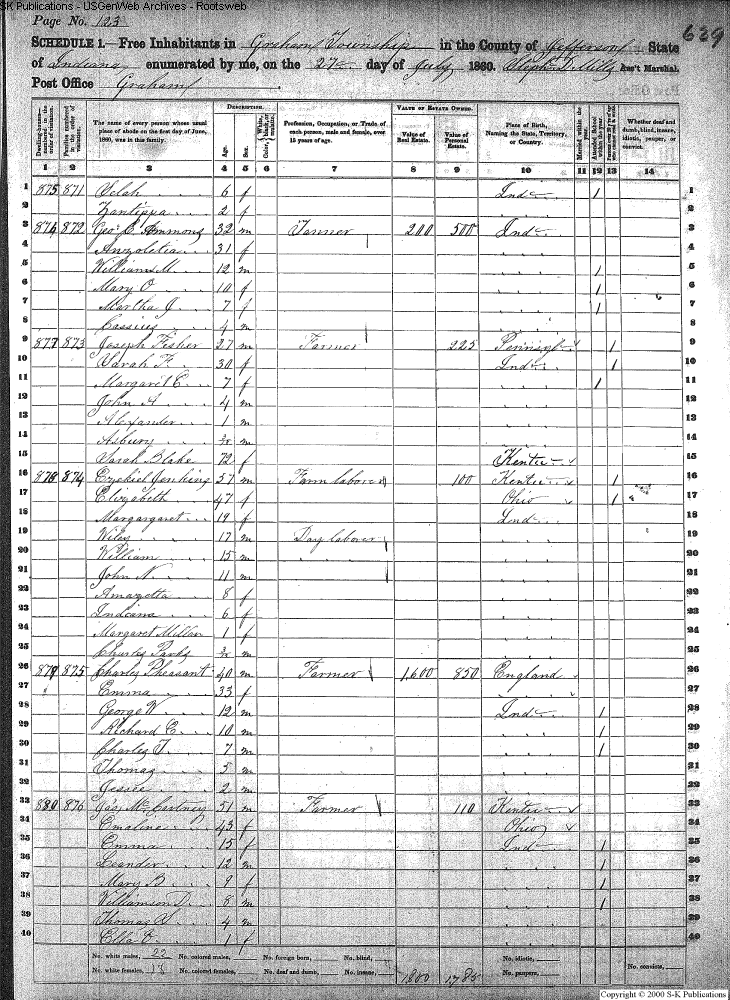 SK Publications - USGenWeb Archives - Rootsweb
Page No. 123
629
SCHEDULE 1.—Free Inhabitants in Graham Township in the County of Jefferson State
of Indiana enumerated by me, on the 27 day of July 1860. Ass't Marshal.
Post Office Graham
Dwelling-houses—numbered in the order of visitation.
Families numbered in the order of visitation.
The name of every person whose usual place of abode on the first day of June, 1860, was in this family.
DESCRIPTION.
Age.
Sex.
Color, White, black, or mulatto.
Profession, Occupation, or Trade of each person, male and female, over 15 years of age.
VALUE OF ESTATE OWNED.
Value of Real Estate.
Value of Personal Estate.
Place of Birth, Naming the State, Territory, or Country.
Married within the year.
Attended School within the year.
Whether deaf and dumb, blind, insane, idiotic, pauper, or convict.
1 2 3 4 5 6 7 8 9 10 11 12 13 14
1 875 871 Selah 6 f Ind 1 1
2 Zantippa 2 f 2
3 876 872 Geo. C. Ammons 32 m Farmer 200 500 Ind 3
4 Anzoletia 31 f 4
5 William M. 12 m 1 5
6 Mary O 10 f 1 6
7 Martha J 7 f 1 7
8 Cassius 4 m 8
9 877 873 Joseph Fisher 27 m Farmer 225 Pennsyl 1 9
10 Sarah F. 30 f Ind 1 10
11 Margaret C. 7 f 1 11
12 John A 4 m 12
13 Alexander 1 m 13
14 Asbury m 14
15 Sarah Blake 72 f Kentu 15
16 878 874 Ezekiel Jenkins 57 m Farm laborer 100 Kentu 1 16
17 Elizabeth 47 f Ohio 1 17
18 Margargaret 19 f Ind 18
19 Wiley 17 m Day laborer 19
20 William 15 m 20
21 John N. 11 m 21
22 Amazetta 8 f 22
23 Indiana 6 f 23
24 Margaret Millan 1 f 24
25 Charles Parks m 25
26 879 875 Charles Pheasant 40 m Farmer 1,600 850 England 26
27 Emma 33 f 27
28 George W 12 m Ind 1 28
29 Richard E. 10 m 1 29
30 Charles T. 7 m 1 30
31 Thomas 5 m 31
32 Jessee 2 m 32
33 880 876 Jas. McCartney 51 m Farmer 110 Kentu 33
34 Emaline 43 f Ohio 34
35 Emma 15 f Ind 1 35
36 Leander 12 m 1 36
37 Mary B 9 f 1 37
38 Williamson D. 8 m 1 38
39 Thomas S. 4 m 39
40 Ella E. 1 f 40
No. white males, 22 No. colored males, No. foreign born, No. blind, No. idiotic, No. convicts,
No. white females, 18 No. colored females, No. deaf and dumb, No. insane, 1800 1785 No. paupers,
Copyright © 2000 S-K Publications